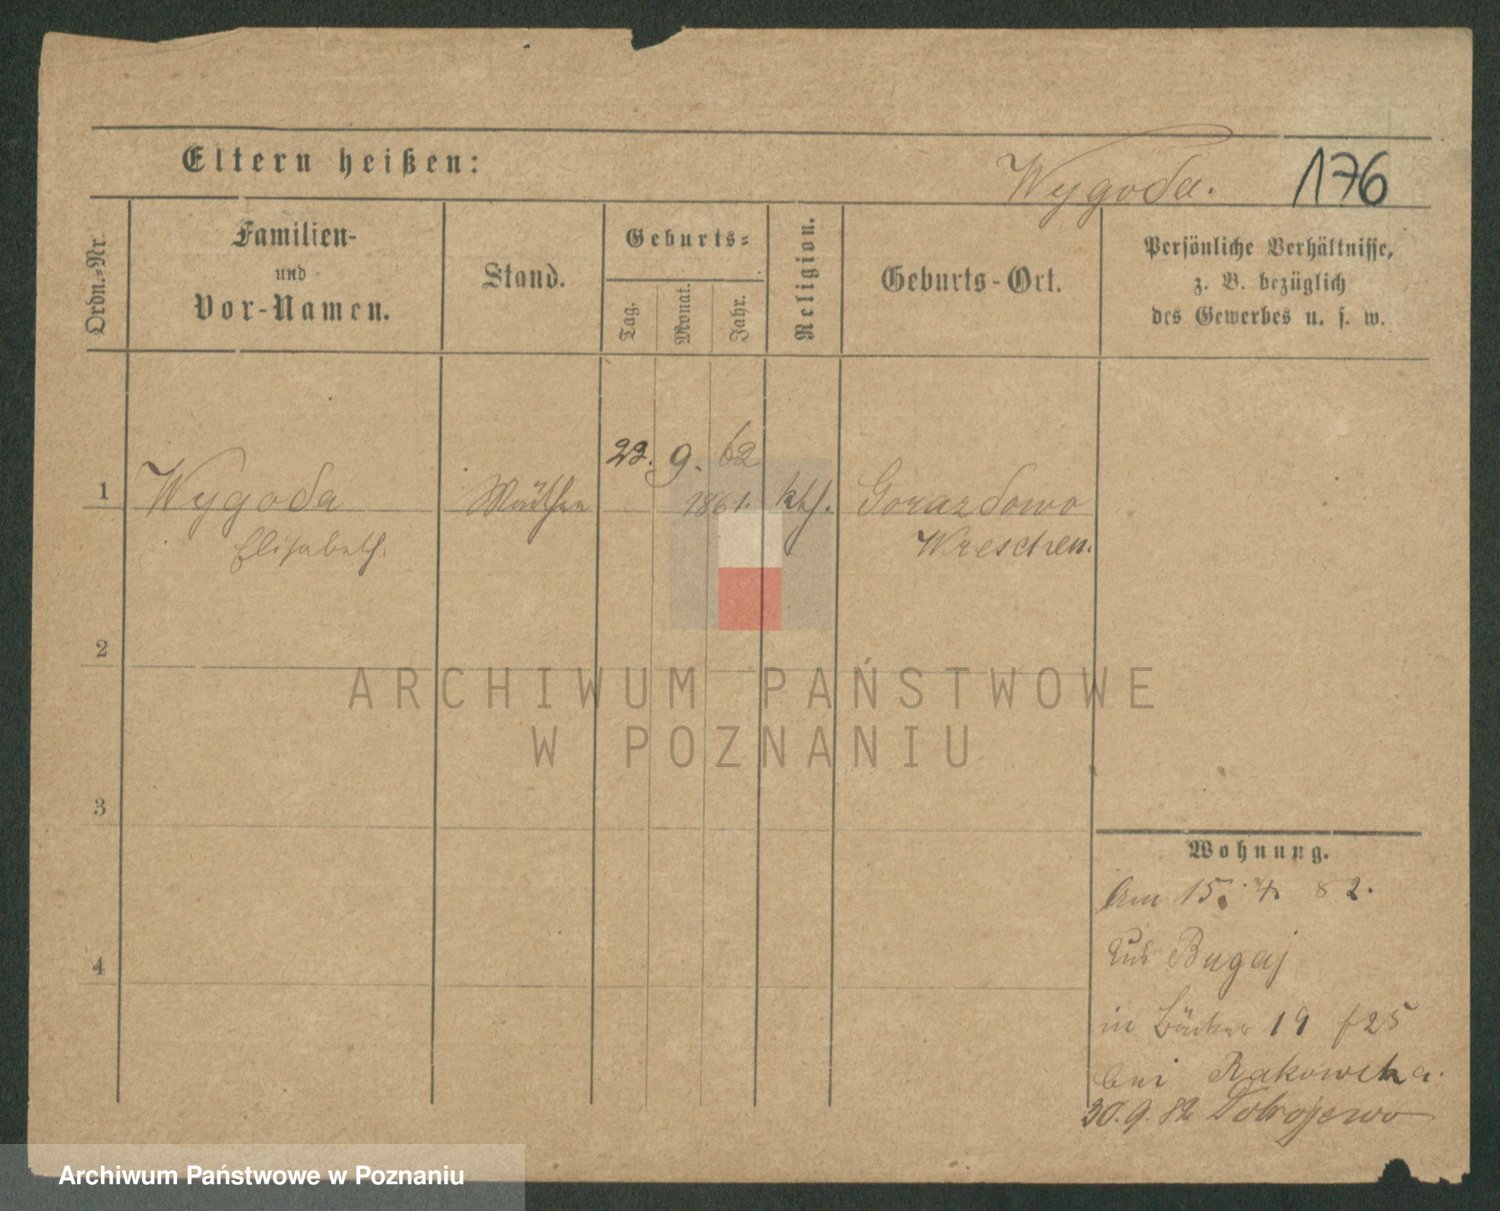 Eltern heißen:
Wygoda.
176
Ordn.=Nr.
Familien-
und
Vor-Namen.
Stand.
Geburts=
Tag.
Monat.
Jahr.
Religion.
Geburts-Ort.
Persönliche Verhältnisse,
z. B. bezüglich
des Gewerbes u. s. w.
23. 9. 62
1 Wygoda 1861. kth. Gorazdowo
Elisabeth. Wreschen.
2
ARCHIWUM PAŃSTWOWE
W POZNANIU
3
Wohnung.
Am 15. 4. 82.
Aus Bugaj
4
in Bäcker 19 f 25
bei Rakowska.
30. 9. 82 Dobrojewo
Archiwum Państwowe w Poznaniu